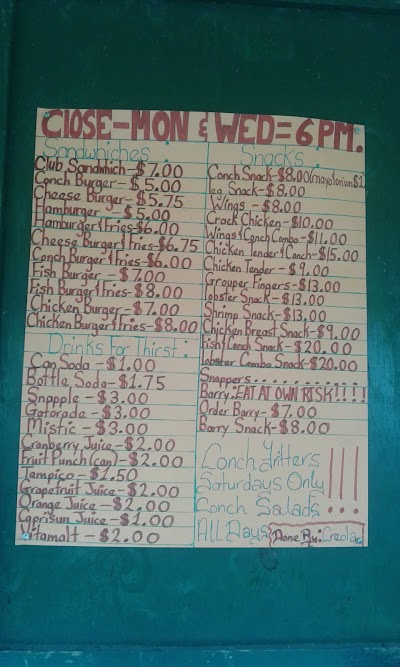 Close-Mon & Wed=6PM.
Sandwhiches
Club Sandwhich-$7.00
Conch Burger-$5.00
Cheese Burger-$5.75
Hamburger-$5.00
Hamburger&Fries-$6.00
Cheese Burger&Fries-$6.75
Conch Burger&Fries-$6.00
Fish Burger-$7.00
Fish Burger&Fries-$8.00
Chicken Burger-$7.00
Chicken Burger&Fries-$8.00
Drinks For Thirst:
Can Soda-$1.00
Bottle Soda-$1.75
Snapple-$3.00
Gatorade-$3.00
Mistic-$3.00
Cranberry Juice-$2.00
Fruit Punch(can)-$2.00
Tampico-$1.50
Grapefruit Juice-$2.00
Orange Juice-$2.00
Caprisun Juice-$1.00
Vitamalt-$2.00
Snacks
Conch Snack-$8.00(mayo/onion$1
leg Snack-$8.00
Wings-$8.00
Crack Chicken-$10.00
Wings&Conch Combo-$11.00
Chicken Tender&Conch-$15.00
Chicken Tender-$9.00
Grouper Fingers-$13.00
lobster Snack-$13.00
Shrimp Snack-$13.00
Chicken Breast Snack-$9.00
Fish&Conch Snack-$20.00
lobster Combo Snack-$20.00
Snappers..........
Barry.EAT AT OWN RISK!!!!
Order Barry-$7.00
Barry Snack-$8.00
Conch Fritters
Saturdays Only
Conch Salads
All Days
!!!
Done By: Creola